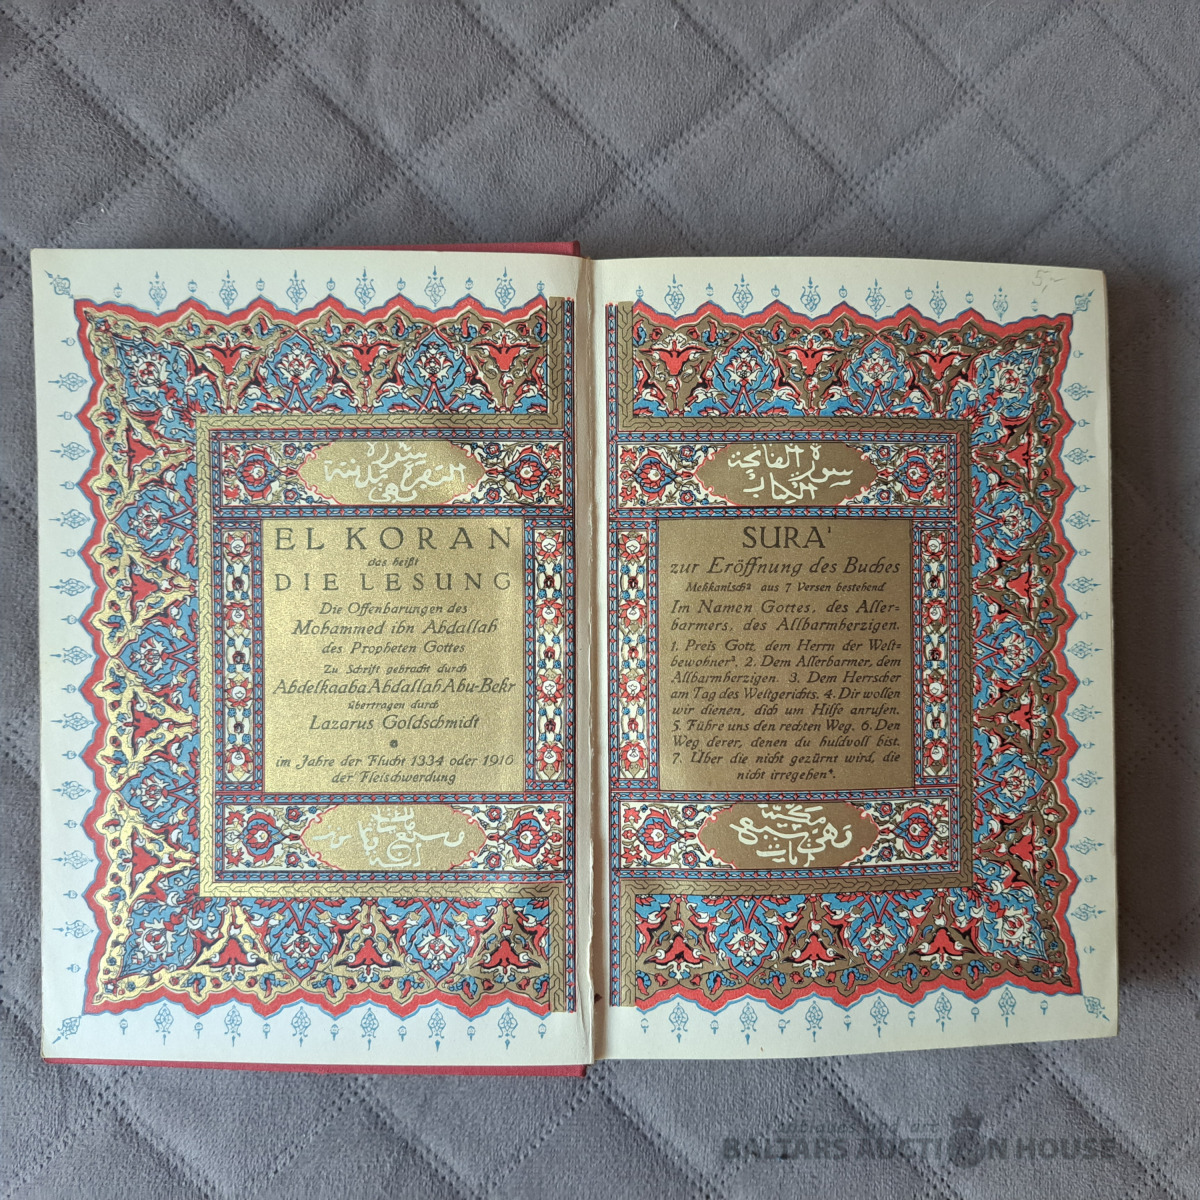 سورة
البقرة مدنية
وهي
EL KORAN
das heißt
DIE LESUNG
Die Offenbarungen des
Mohammed ibn Abdallah
des Propheten Gottes
Zu Schrift gebracht durch
Abdelkaaba Abdallah Abu-Bekr
übertragen durch
Lazarus Goldschmidt
im Jahre der Flucht 1334 oder 1916
der Fleischwerdung
سورة الفاتحة
الكتاب
SURA¹
zur Eröffnung des Buches
Mekkanisch² aus 7 Versen bestehend
Im Namen Gottes, des Aller=
barmers, des Allbarmherzigen.
1. Preis Gott, dem Herrn der Welt=
bewohner³. 2. Dem Allerbarmer, dem
Allbarmherzigen. 3. Dem Herrscher
am Tag des Weltgerichts. 4. Dir wollen
wir dienen, dich um Hilfe anrufen.
5. Führe uns den rechten Weg. 6. Den
Weg derer, denen du huldvoll bist.
7. Über die nicht gezürnt wird, die
nicht irregehen⁴.
مكية
وهي سبع
آيات
5,-
antiques and art
BALTARS AUCTION HOUSE